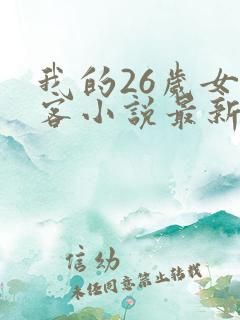 我的26岁女
客小说最新
信幼
未经同意禁止转载